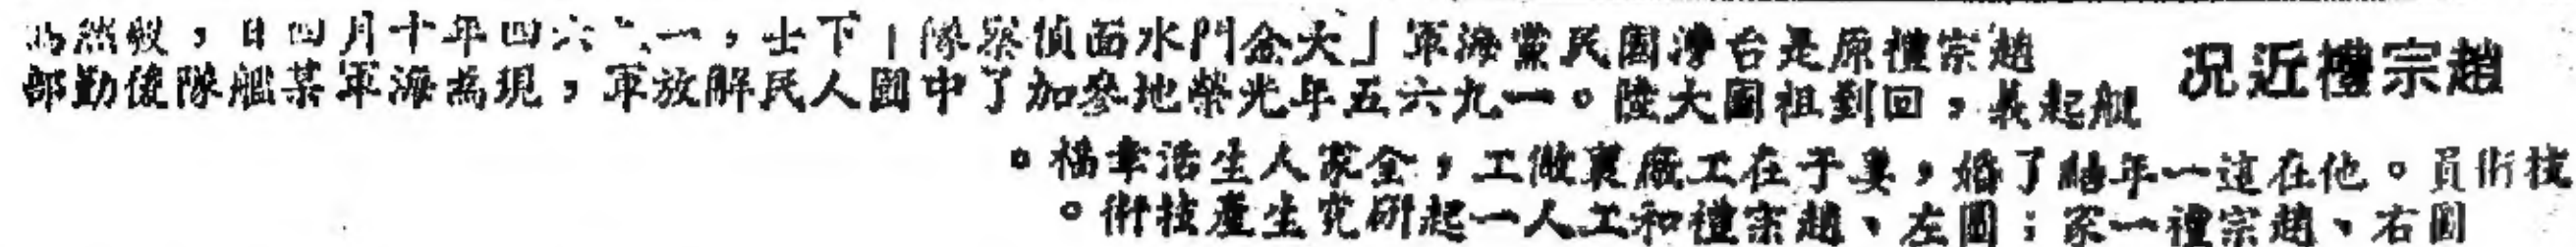 趙宗禮近况
趙宗禮原是台灣國民黨海軍「大金門水面偵察隊」下士，一九六四年十月四日，毅然駕
艇起義，回到祖國大陸。一九六五年光榮地參加了中國人民解放軍，現為海軍某艦隊後勤部
技術員。他在這一年結了婚，妻子在工廠裏做工，全家人生活幸福。
圖右、趙宗禮一家；圖左、趙宗禮和工人一起研究生產技術。